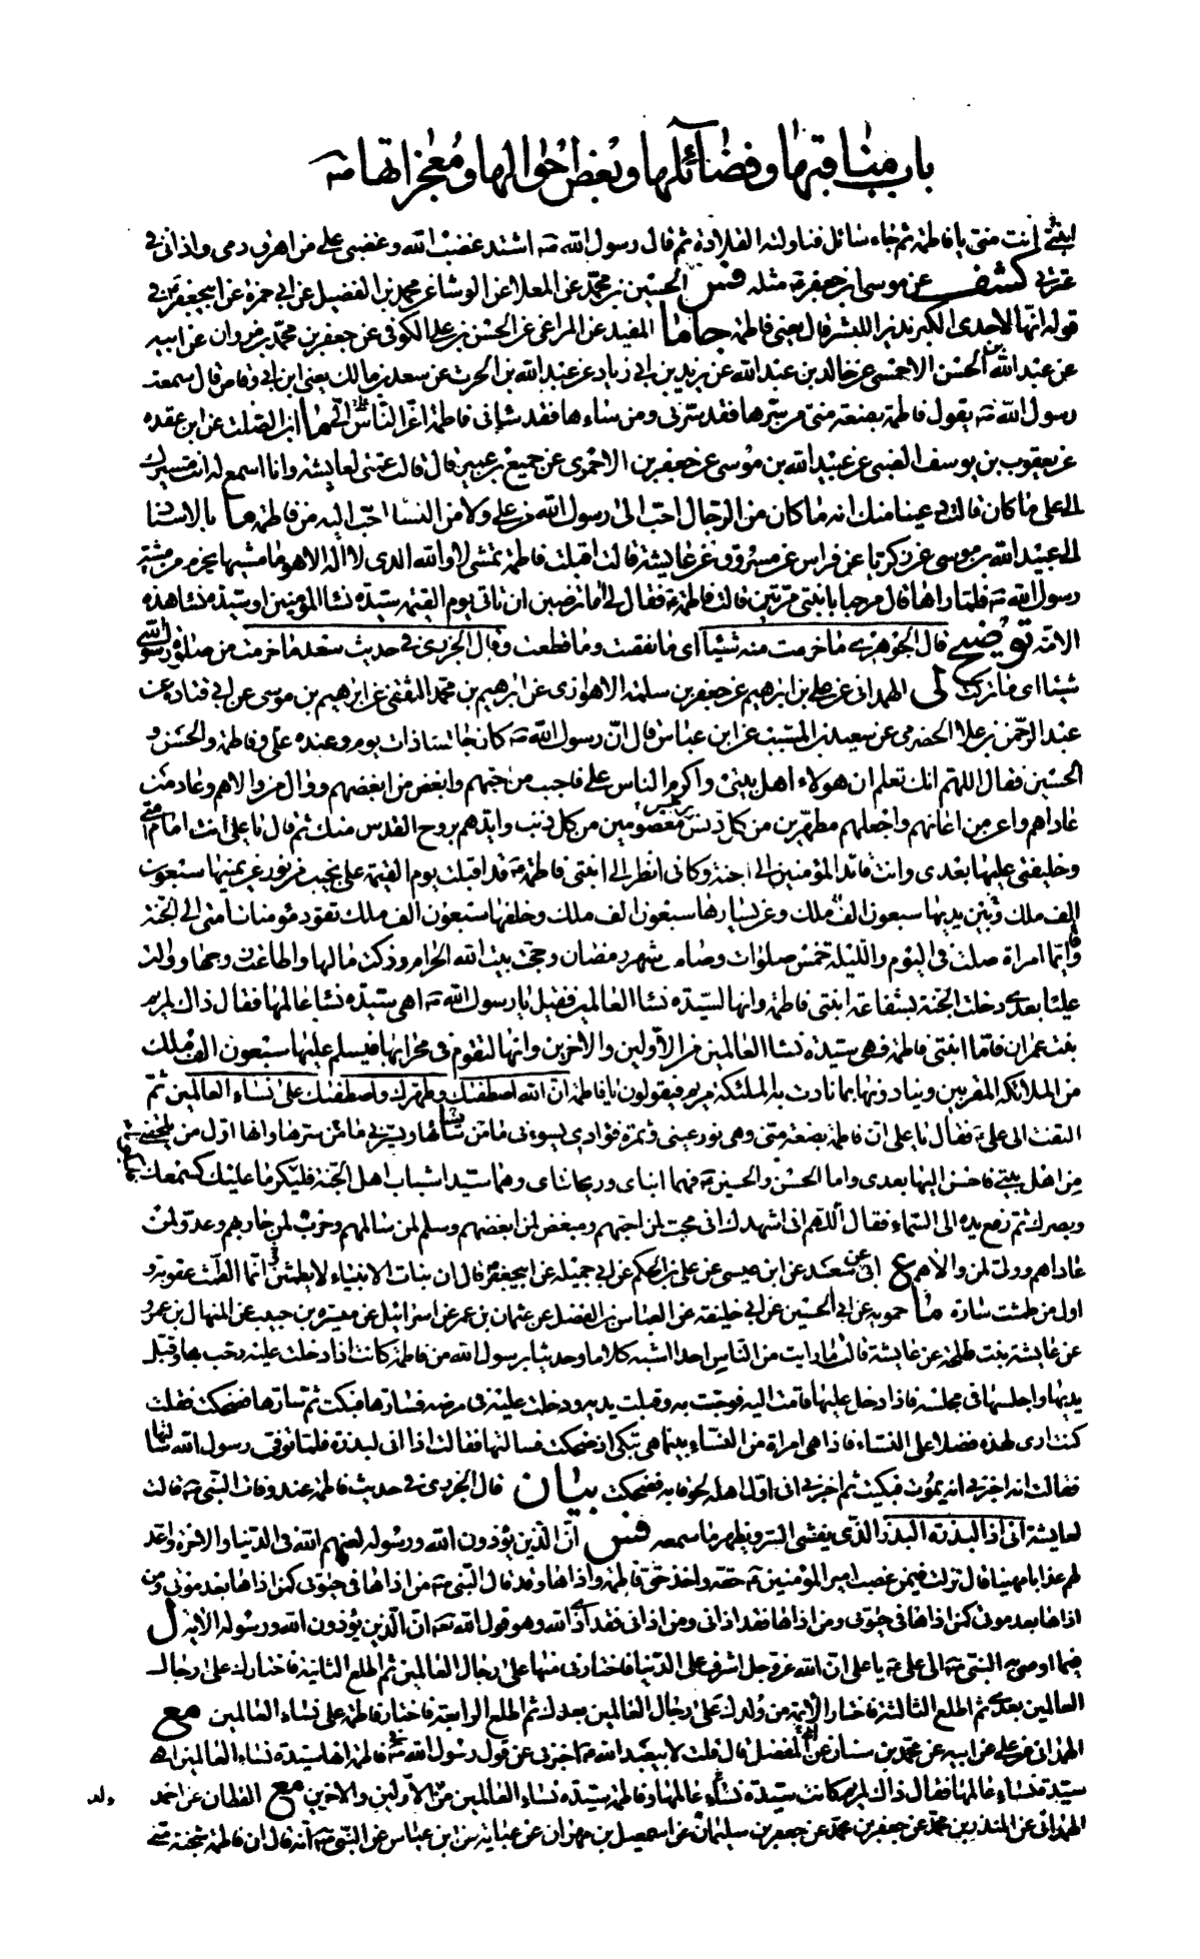 باب مناقبها وفضائلها وبعض احوالها ومعجزاتها ص
ابنتي انت مني يا فاطمة ثم جاء سائل فناولته القلادة ثم قال رسول الله ص اشتد غضب الله وغضبي على من اهرق دمي واذاني في
عترتي كشف عن موسى بن جعفر ع مثله فس الحسين بن محمد عن المعلا عن الوشا عن محمد بن الفضيل عن ابي حمزة عن ابيجعفر ع في
قوله انها لاحدى الكبر نذيرا للبشر قال يعني فاطمة جا ما المفيد عن المراغي عن الحسن بن علي الكوفي عن جعفر بن محمد بن مروان عن ابيه
عن عبد الله بن الحسن الاحمسي عن خالد بن عبد الله عن يزيد بن ابي زياد عن عبد الله بن الحرث عن سعد بن مالك يعني ابن ابي وقاص قال سمعت
رسول الله ص يقول فاطمة بضعة مني من سرها فقد سرني ومن ساءها فقد ساءني فاطمة اعز الناس الي ما ابن الصلت عن ابن عقده
عن يعقوب بن يوسف الضبي عن عبيد الله بن موسى عن جعفر بن الاحمري عن جميع بن عمير قال قالت عمتي لعايشة وانا اسمع له انت مسيرك
الى علي ما كان قالت دعينا منك انه ما كان من الرجال احب الى رسول الله من علي ولا من النسا احب اليه من فاطمة ما بالاسناد
الى عبيد الله بن موسى عن زكريا عن فراس عن مسروق عن عايشة قالت اقبلت فاطمة تمشي لا والله الذي لا اله الا هو ما مشيها يخرم من مشية
رسول الله ص فلما راها قال مرحبا بابنتي مرتين قالت فاطمة ع فقال لي اما ترضين ان تاتي يوم القيمة سيدة نسا المؤمنين او سيدة نسا هذه
الامة توضيح قال الجوهري ما خرمت منه شيئا اي ما نقصت وما قطعت وقال الجزري في حديث سعد ما خرمت من صلوة رسول الله
شيئا اي ما تركت لى الهمداني عن علي بن ابراهيم عن جعفر بن سلمة الاهوازى عن ابراهيم بن محمد الثقفي عن ابراهيم بن موسى عن ابي قتادة عن
عبد الرحمن بن علا الحضرمي عن سعيد بن المسيب عن ابن عباس قال ان رسول الله ص كان جالسا ذات يوم وعنده علي وفاطمة والحسن و
الحسين فقال اللهم انك تعلم ان هولاء اهل بيتي واكرم الناس علي فاحبب من احبهم وابغض من ابغضهم ووال من والاهم وعاد من
عاداهم واعن من اعانهم واجعلهم مطهرين من كل رجس معصومين من كل ذنب وايدهم بروح القدس منك ثم قال يا علي انت امام امتي
وخليفتي عليها بعدى وانت قائد المؤمنين الى الجنة وكاني انظر الى ابنتي فاطمة ع قد اقبلت يوم القيمة على نجيب من نور عن يمينها سبعون
الف ملك وبين يديها سبعون الف ملك وعن يسارها سبعون الف ملك وخلفها سبعون الف ملك تقود مؤمنات امتي الى الجنة
فايما امراة صلت في اليوم والليلة خمس صلوات وصامت شهر رمضان وحجت بيت الله الحرام وزكت مالها واطاعت زوجها ووالت
عليا بعدي دخلت الجنة بشفاعة ابنتي فاطمة وانها لسيدة نسا العالمين فقيل يا رسول الله ص اهي سيدة نسا عالمها فقال ذاك لمريم
بنت عمران فاما ابنتي فاطمة فهي سيدة نسا العالمين من الاولين والاخرين وانها لتقوم في محرابها فيسلم عليها سبعون الف ملك
من الملائكة المقربين وينادونها بما نادت به الملئكة مريم فيقولون يا فاطمة ان الله اصطفيك وطهرك واصطفيك على نساء العالمين ثم
التفت الى علي ع فقال يا علي ان فاطمة بضعة مني وهي نور عيني وثمرة فؤادي يسوءني ما ساءها ويسرني ما سرها وانها اول من يلحقني
من اهل بيتي فاحسن اليها بعدى واما الحسن والحسين ع فهما ابناي وريحانتاى وهما سيدا شباب اهل الجنة فليكرما عليك كسمعك
وبصرك ثم رفع يده الى السماء فقال اللهم اني اشهدك اني محب لمن احبهم ومبغض لمن ابغضهم وسلم لمن سالمهم وحرب لمن حاربهم وعدو لمن
عاداهم وولي لمن والاهم ع ابي عن سعد عن ابن عيسى عن علي بن الحكم عن ابي جميلة عن ابيجعفر ع قال ان بنات الانبياء لا يطمثن انما الطمث عقوبة و
اول من طمثت سارة ما حمويه عن ابي الحسين عن ابي خليفة عن العباس بن الفضل عن عثمان بن عمر عن اسرائيل عن ميسرة بن حبيب عن المنهال بن عمرو
عن عايشة بنت طلحة عن عايشة قالت ما رايت من الناس احدا اشبه كلاما وحديثا برسول الله من فاطمة كانت اذا دخلت عليه رحب بها وقبل
يديها واجلسها في مجلسه فاذا دخل عليها قامت اليه فرحبت به وقبلت يديه ودخلت عليه في مرضه فسارها فبكت ثم سارها فضحكت فقلت
كنت ارى لهذه فضلا على النساء فاذا هي امراة من النساء بينما هي تبكي اذ ضحكت فسالتها فقالت اذا اني لبذرة فلما توفي رسول الله سالتها
فقالت انه اخبرني انه يموت فبكيت ثم اخبرني اني اول اهله لحوقا به فضحكت بيان قال الجزري في حديث فاطمة عند وفاة النبي ص قالت
لعايشة اني اذا لبذرة البذر الذي يفشي السر ويظهر ما سمعه فس ان الذين يؤذون الله ورسوله لعنهم الله في الدنيا والاخرة واعد
لهم عذابا مهينا قال نزلت فيمن غصب امير المؤمنين ع حقه واخذ حق فاطمة واذاها وقد قال النبي ص من اذاها في حيوتي كمن اذاها بعد موتي ومن
اذاها بعد موتي كمن اذاها في حيوتي ومن اذاها فقد اذاني ومن اذاني فقد اذى الله وهو قول الله تعه ان الذين يؤذون الله ورسوله الاية ل
فيما اوصى به النبي ص الى علي ع يا علي ان الله عز وجل اشرف على الدنيا فاختارني منها على رجال العالمين ثم اطلع الثانية فاختارك على رجال
العالمين بعدي ثم اطلع الثالثة فاختار الائمة من ولدك على رجال العالمين بعدك ثم اطلع الرابعة فاختار فاطمة على نساء العالمين مع
الهمداني عن علي عن ابيه عن محمد بن سنان عن المفضل قال قلت لابيعبد الله ع اخبرني عن قول رسول الله ص في فاطمة انها سيدة نساء العالمين اهي
سيدة نساء عالمها فقال ذاك لمريم كانت سيدة نساء عالمها وفاطمة سيدة نساء العالمين من الاولين والاخرين مع القطان عن احمد
الهمداني عن المنذر بن محمد عن جعفر بن محمد عن جعفر بن سليمان عن اسمعيل بن مهران عن عباية عن ابن عباس عن النبي ص انه قال ان فاطمة شجنة مني